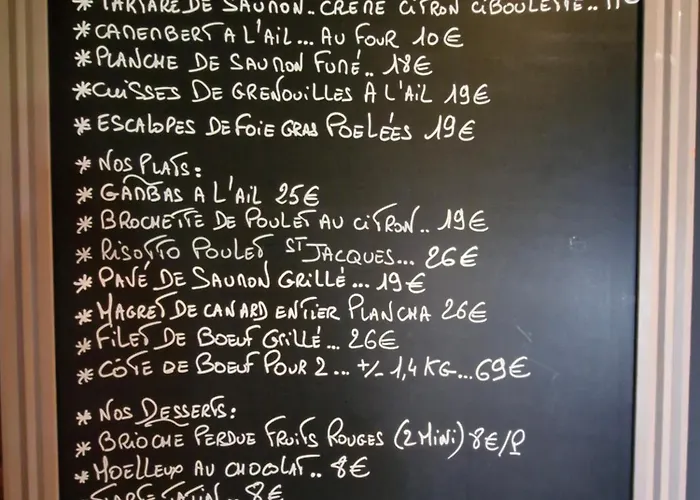 * TARTARE DE SAUMON.. CRÈME CITRON CIBOULETTE..
* CAMEMBERT A L'AIL... AU FOUR 10€
* PLANCHE DE SAUMON FUMÉ.. 18€
* CUISSES DE GRENOUILLES À L'AIL 19€
* ESCALOPES DE FOIE GRAS POELÉES 19€
* NOS PLATS:
* GAMBAS A L'AIL 25€
* BROCHETTE DE POULET AU CITRON.. 19€
* RISOTTO POULET ST JACQUES... 26€
* PAVÉ DE SAUMON GRILLÉ... 19€
* MAGRET DE CANARD ENTIER PLANCHA 26€
* FILET DE BOEUF GRILLÉ... 26€
* CÔTE DE BOEUF POUR 2... +/- 1,4 KG...69€
* NOS DESSERTS:
* BRIOCHE PERDUE FRUITS ROUGES (2 MINI) 8€/P
* MOELLEUX AU CHOCOLAT.. 8€
TARTE TATIN.. 8€